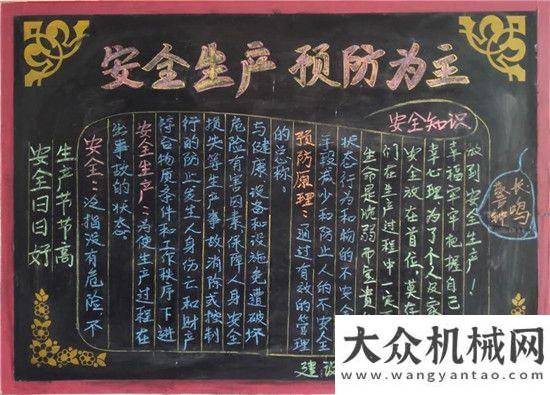 安全生产 预防为主
安全知识
安全日日好
生产节节高
安全：泛指没有危险、不
出事故的状态。
安全生产：为使生产过程在
符合物质条件和工作秩序下进
行的防止发生人身伤亡和财产
损失等生产事故，消除或控制
危险有害因素，保障人身安全
与健康、设备和设施免遭破坏
的总称。
预防原理：通过有效的管理
手段减少和防止人的不安全
状态行为和物的不安全
生命是脆弱而宝贵
们在生产过程中一定
安全放在首位，莫
幸心理，为了个人及家
幸福牢牢把握自己
做到安全生产！
警钟
长鸣
建设
大众机械网
www.wangyantao.com